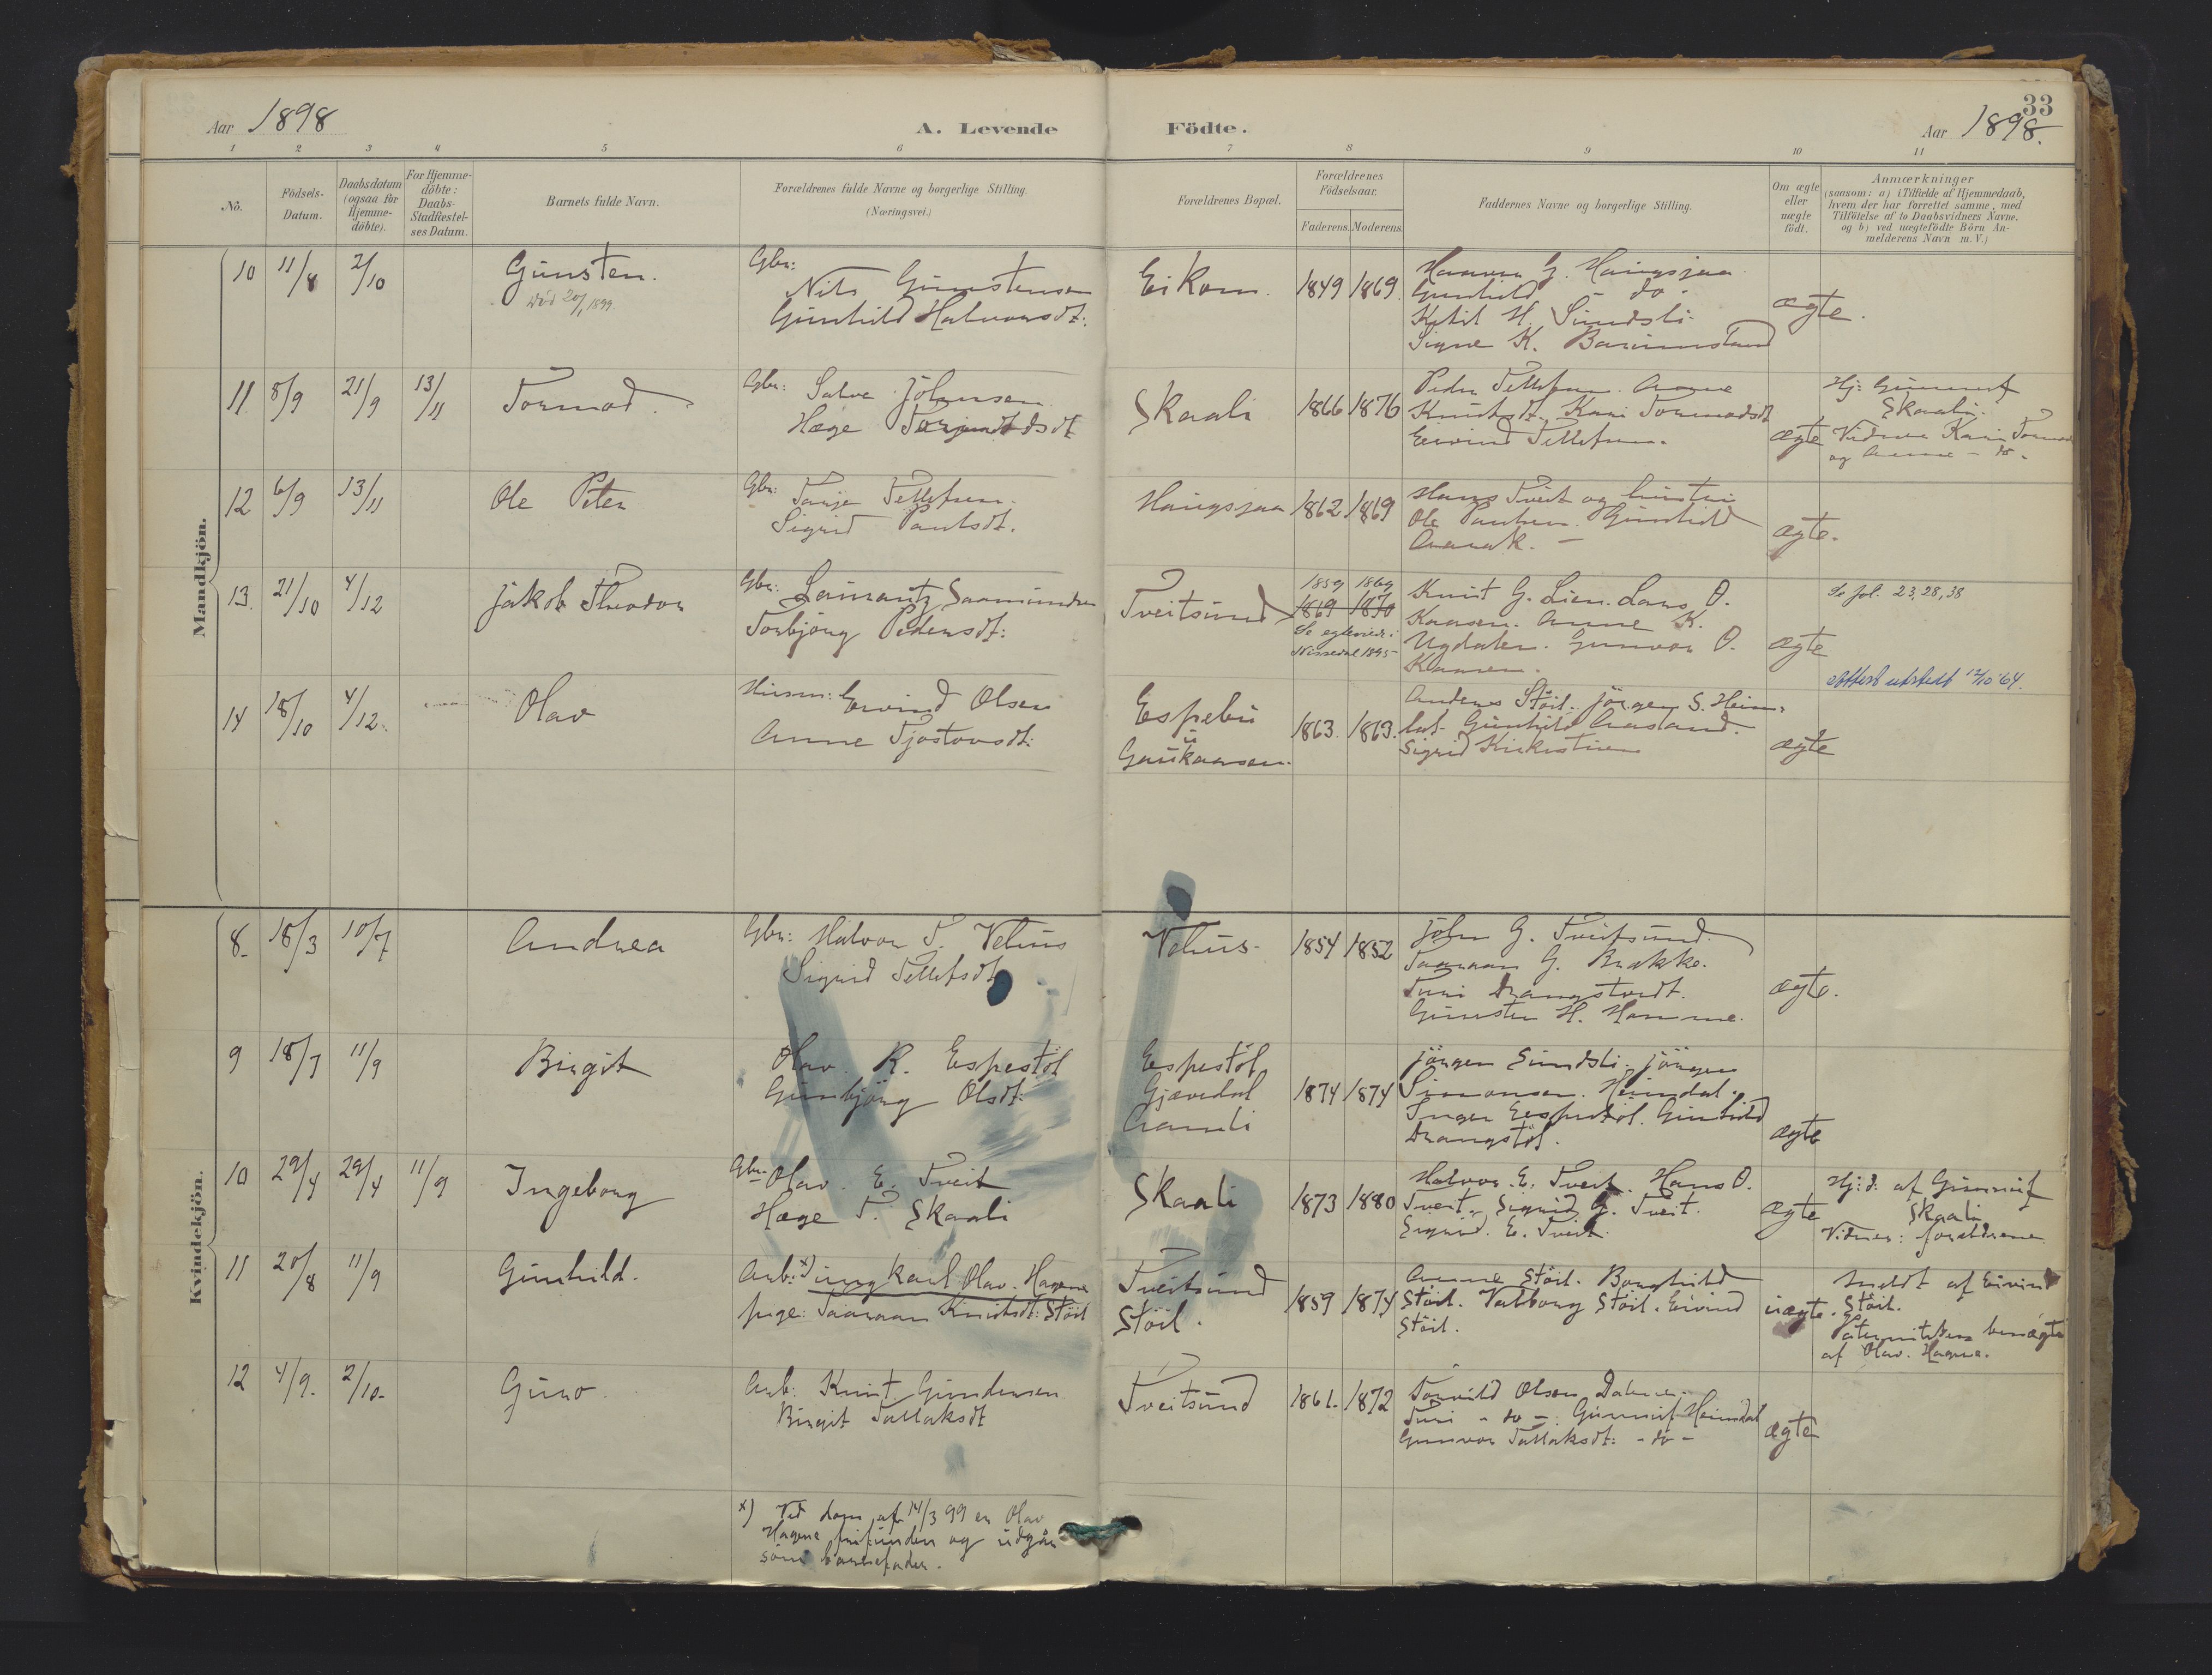 33
Aar 1898
A. Levende
Födte.
Aar 1898.
1 2 3 4 5 6 7 8 9 10 11
No.
Födsels-
Datum.
Daabsdatum
(ogsaa for
Hjemme-
döbte).
For Hjemme-
döbte:
Daabs-
Stadfæstel-
ses Datum.
Barnets fulde Navn.
Forældrenes fulde Navne og borgerlige Stilling.
(Næringsvei.)
Forældrenes Bopæl.
Forældrenes
Födselsaar.
Faderens. Moderens.
Faddernes Navne og borgerlige Stilling.
Om ægte
eller
uægte
födt.
Anmærkninger
(saasom: a) i Tilfælde af Hjemmedaab,
hvem der har forrettet samme, med
Tilföielse af to Daabsvidners Navne.
og b) ved uægtefödte Börn An-
melderens Navn m. V.)
Mandkjön.
10 11/8 2/10 Gunsten.
Död 20/1 1899.
Gbr:
Nils Gunstensen
Gunhild Halvorsdt:
Eikom 1849 1869.
Gunhild - do -
Ketil H. Sundsli
Signe K.
ægte.
11 8/9 21/9 13/11 Tormod.
Gbr: Salve Johnsen
Hæge Tormodsdt
Skaali 1866 1876
Peder Tellefsen. Anne
Knutsdt. Kari Tormodsdt
Eivind Tellefsen.
ægte
Hj: Gunnuf
Skaali.
Vidner Kari
og Anne - do -
12 6/9 13/11 Ole Peter
Gbr: Tarje Tellefsen.
Sigrid Paulsdt.
Haugsjaa 1862 1869
Hans Tveit og hustru
Ole Paulsen. Gunhild
ægte.
13. 21/10 4/12 Jakob Theodor
Gbr: Laurantz Saamundsen
Torbjörg Pedersdt:
Tveitsund
1859 1869
1869 1870
Se egtevied i
Nissedal 1895-
Knut G. Lien. Lars O.
Kaasen. Anne K.
Ugdalen. Gunvor O.
Kaasen.
ægte
Se fol. 23, 28, 38
Attest utstedt 12/10 '64.
14 18/10 4/12. Olav
Husm: Eivind Olsen
Anne Tjostovsdt:
Espebu
u
Gaukaasen.
1863. 1863.
Anders Stöil. Jörgen S. Heim-
dal. Gunhild Aasland.
Sigrid
ægte
Kvindekjön.
8. 18/3 10/7 Andrea
Gbr: Halvor T. Vehus
Sigrid Tellefsdt
Vehus. 1854 1852
John G. Tveitsund.
Taaraan G. Brække.
Turi
Gunsten H. Hamme.
ægte.
9 18/7 11/9 Birgit
Olav R. Espestöl
Gunbjörg Olsdt:
Espestöl
Gjövdal
Aamli
1874 1874
Jörgen Sundsli. Jörgen
Simonsen. Heimdal.
Inger Espestöl. Gunhild
Drangstöl.
ægte
10 29/4 29/4 11/9 Ingeborg
Gbr. Olav. E. Tveit
Hæge T. Skaali
Skaali 1873 1880
Halvor E. Tveit. Hans O.
Tveit. Sigrid G. Tveit.
Sigrid. E. Tveit.
ægte
Hj: d: af Gunnuf
Skaali
Vidner: forældrene
11 20/8 11/9 Gunhild.
Arb: x) ungkarl Olav. Hagene
pige: Taaraan Knutsdt: Stöil
Tveitsund
Stöil.
1859 1874
Anne Stöil. Borghild
Stöil. Valborg Stöil. Eivind
Stöil.
uægte.
Meldt af Eivind
Stöil.
Paterniteten benægtes
af Olav. Hagene.
12 4/9. 2/10. Guro
Arb: Knut Gundersen
Birgit Tallaksdt
Tveitsund 1861. 1872
Torvild Olsen Dalene.
Turi - do -. Gunnuf Heimdal
Gunvor Tallaksdt: - do -
ægte
x) Ved dom af 14/3 99 er Olav
Hagene frifunden og udgår
som barnefader.